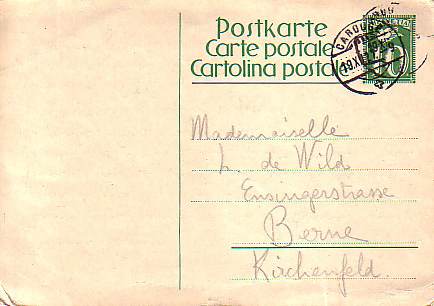 Postkarte
Carte postale
Cartolina postale
10
Mademoiselle
L. de Wild
Ensingerstrasse
Berne
Kirchenfeld.